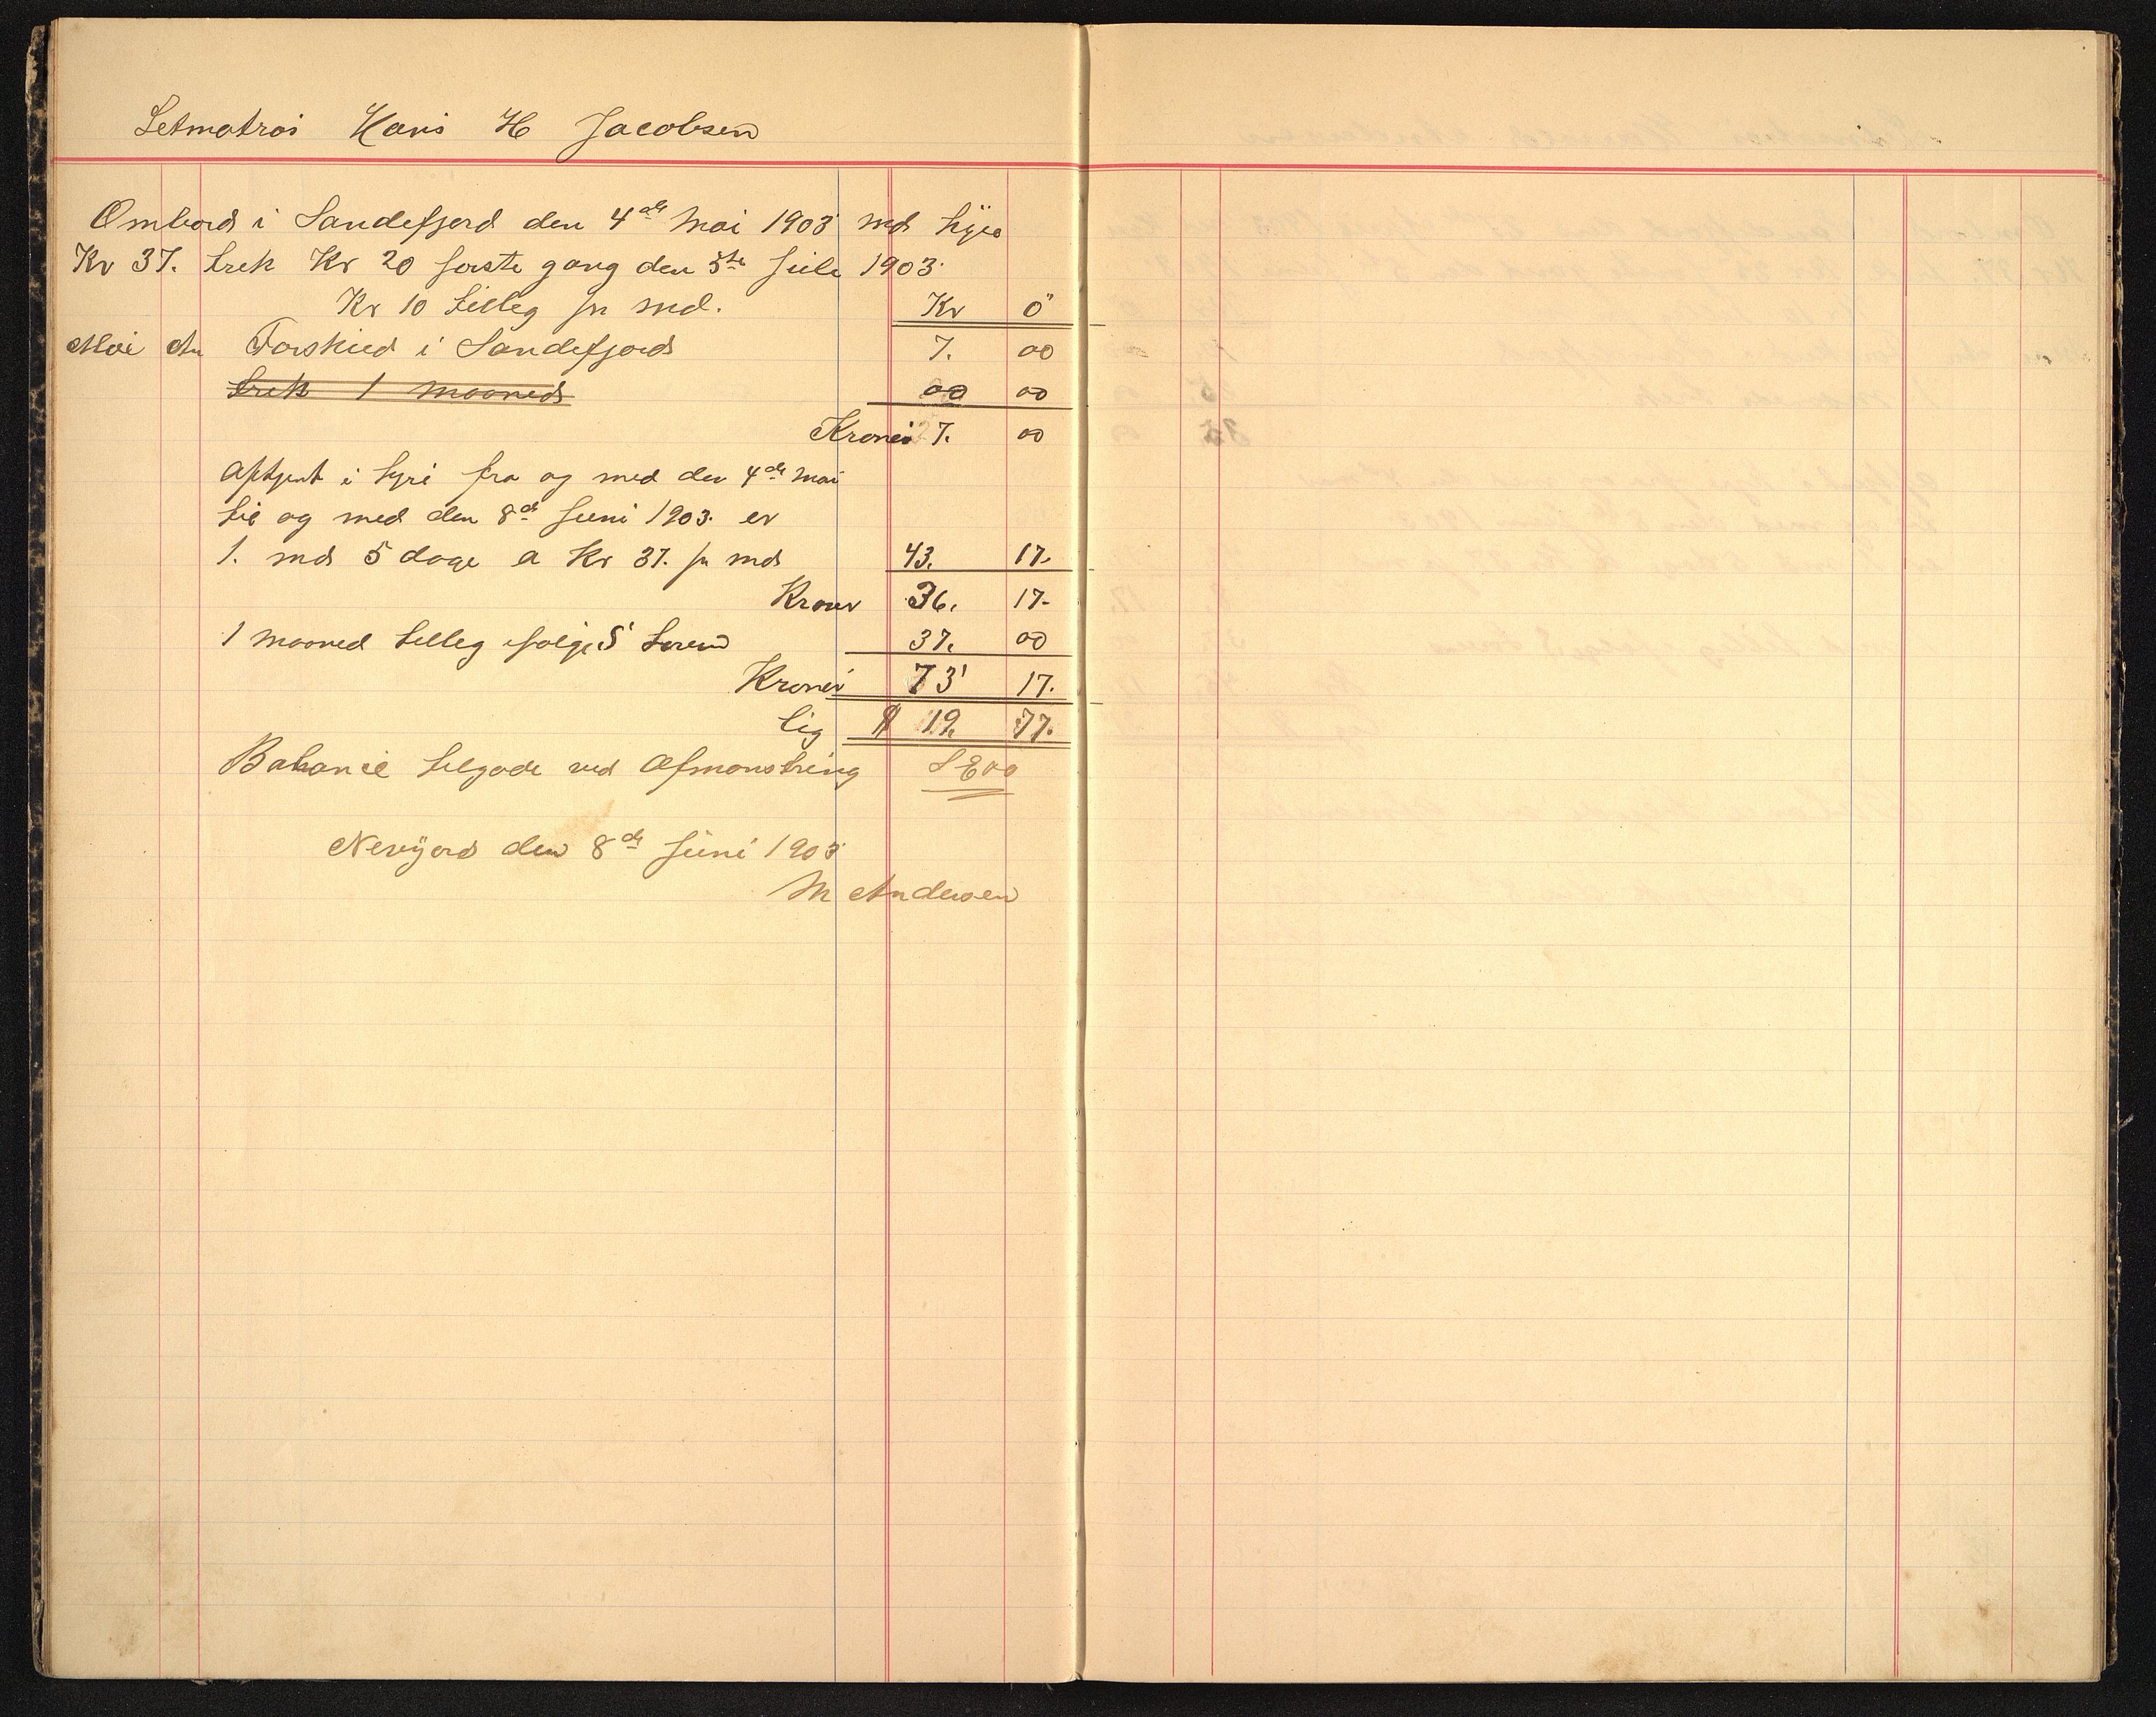 Letmatros Hans H Jacobsen
Ombord i Sandefjord den 4de Mai 1903 md hyre
Kr 37. trek Kr 20 første gang den 5te Juli 1903.
Kr 10 tilleg pr md. Kr Ö
Mai An Forskud i Sandefjord 7. 00
trek 1 maaneds 00 00
Kroner 7. 00
Aftjent i hyre fra og med den 4de Mai
til og med den 8de Juni 1903. er
1. md 5 dage a Kr 37. pr md 43. 17.
Kroner 36. 17.
1 maaned tilleg ifølge S loven 37. 00
Kroner 73 17.
lig $ 19. 77.
Balance tilgode ved Afmønstring
Nevyord den 8de Juni 1903
M Andersen